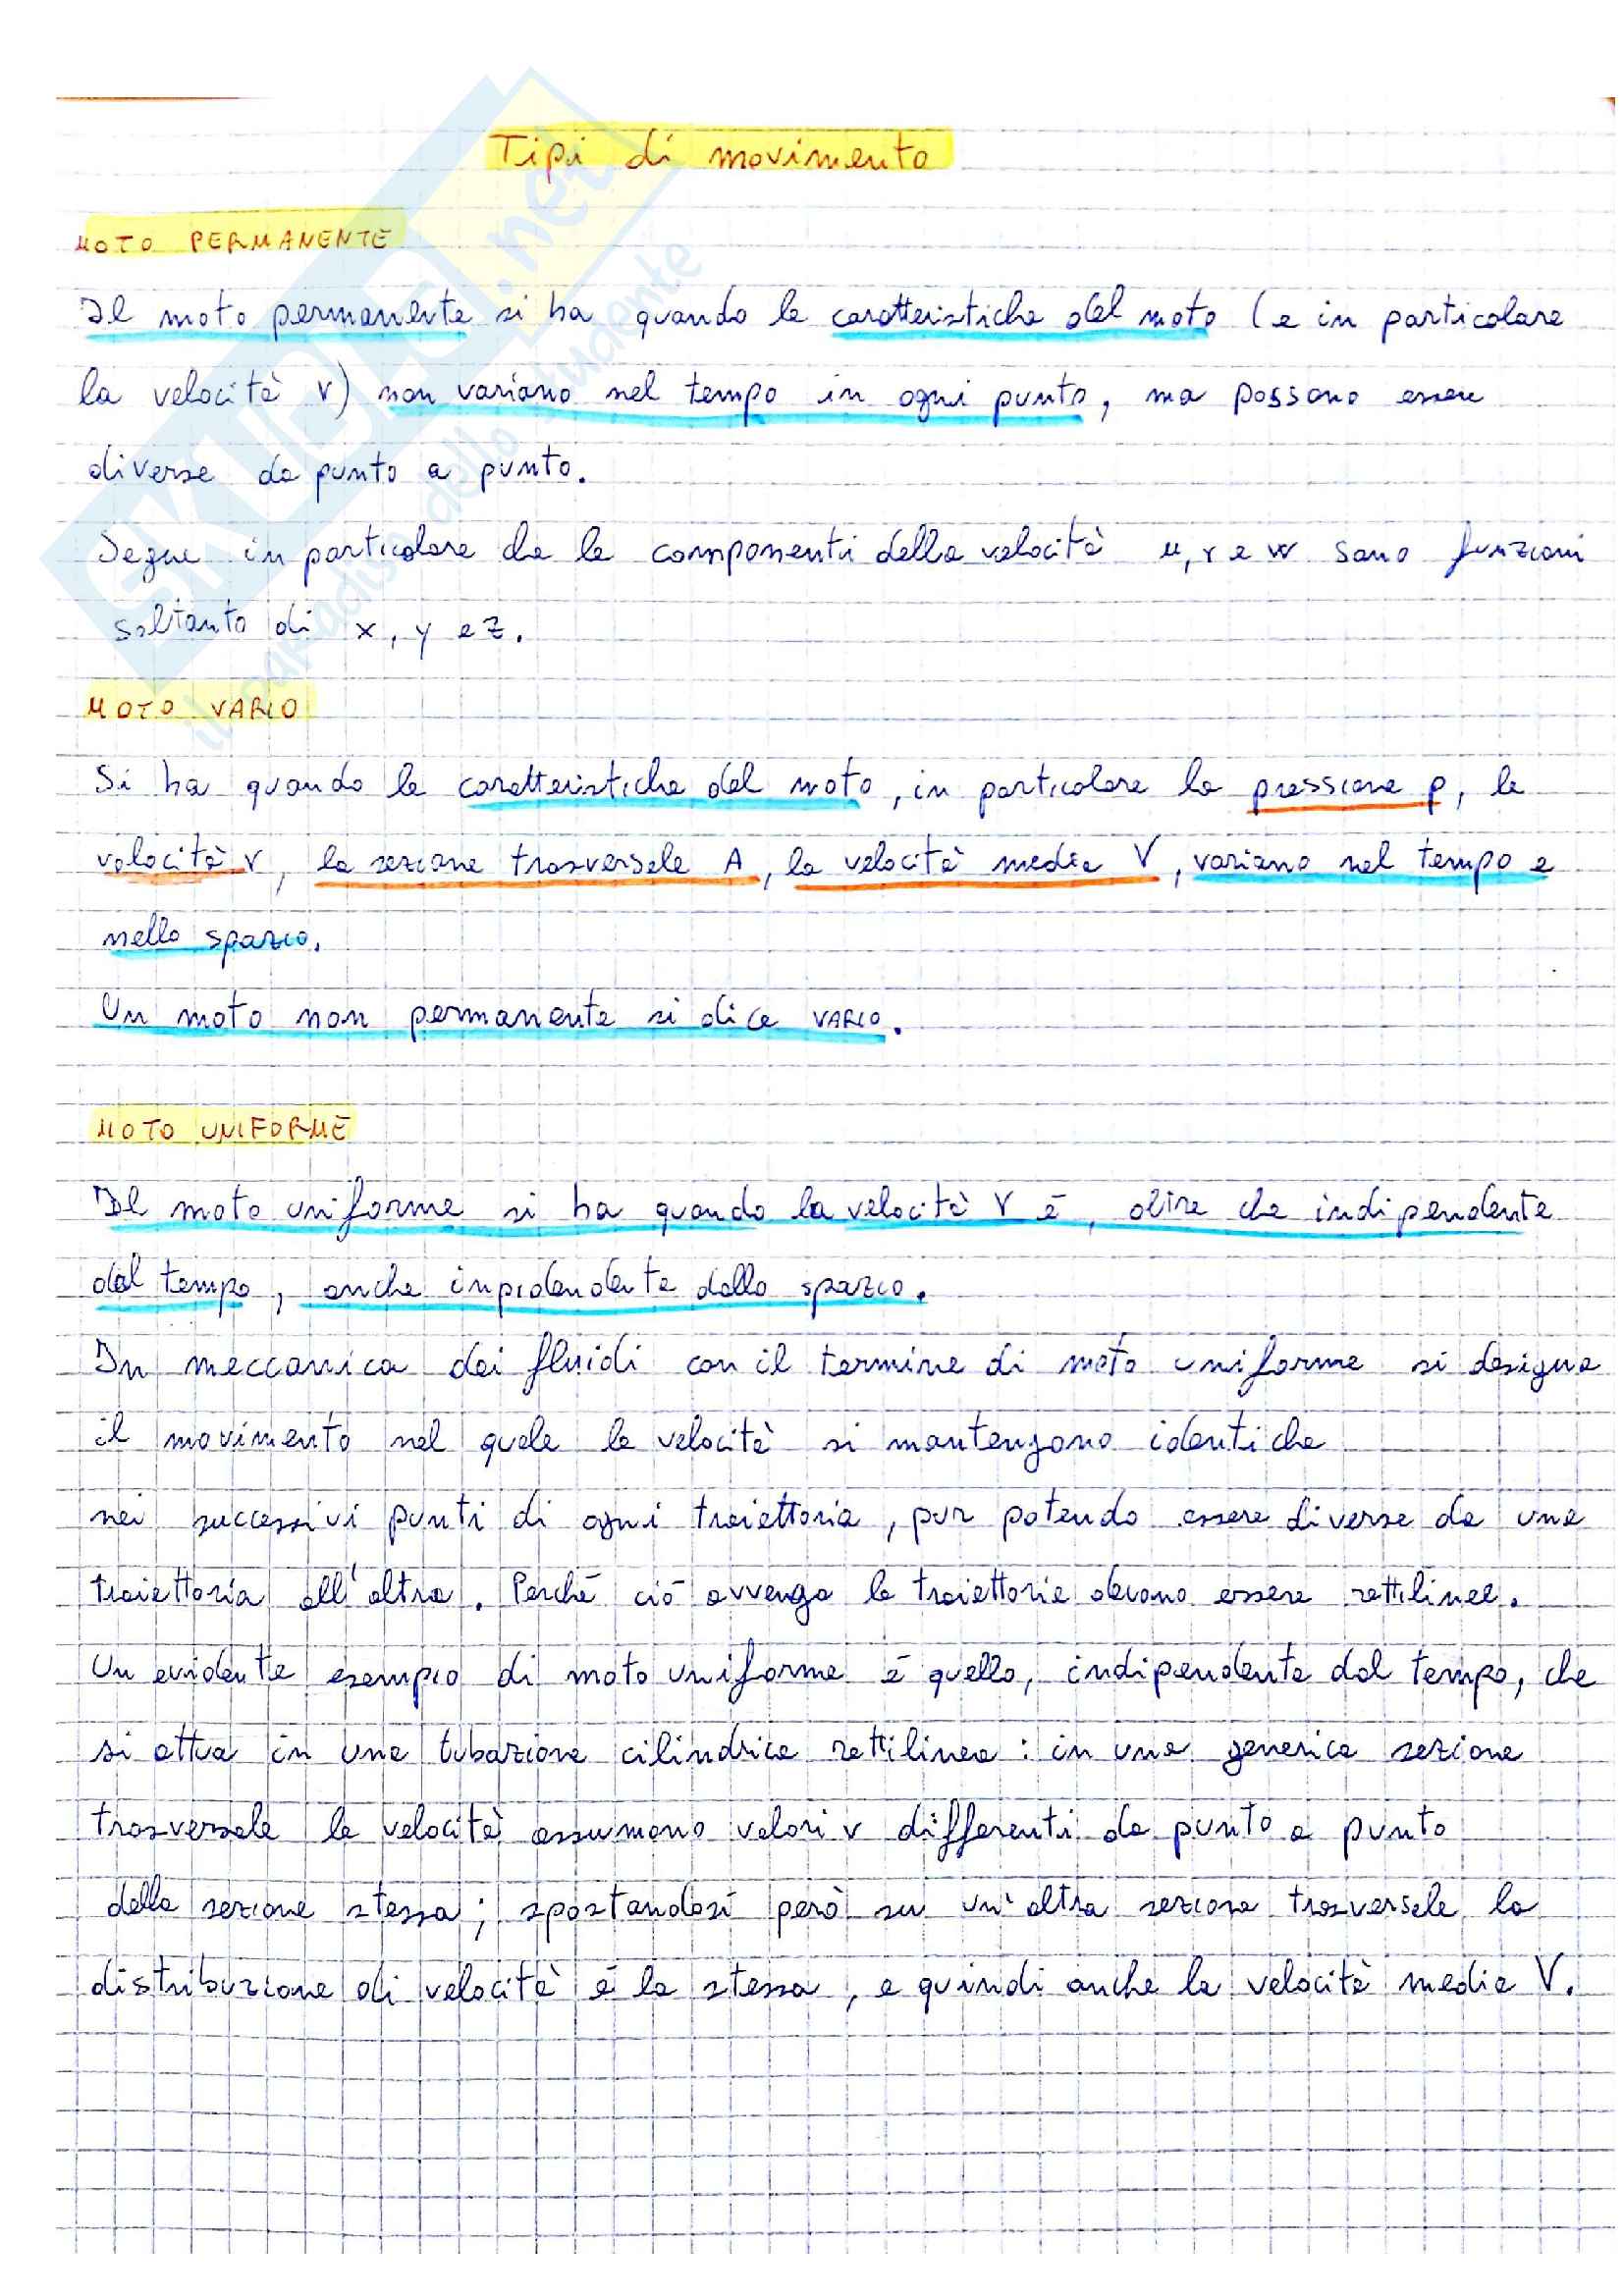 Tipi di movimento
MOTO PERMANENTE
Il moto permanente si ha quando le caratteristiche del moto (e in particolare
la velocità v) non variano nel tempo in ogni punto, ma possono essere
diverse da punto a punto.
Segue in particolare che le componenti della velocità u, v e w sono funzioni
soltanto di x, y e z.
MOTO VARIO
Si ha quando le caratteristiche del moto, in particolare la pressione p, la
velocità v, la sezione trasversale A, la velocità media V, variano nel tempo e
nello spazio.
Un moto non permanente si dice VARIO.
MOTO UNIFORME
Il moto uniforme si ha quando la velocità v è, oltre che indipendente
dal tempo, anche inpidendente dallo spazio.
In meccanica dei fluidi con il termine di moto uniforme si designa
il movimento nel quale le velocità si mantengono identiche
nei successivi punti di ogni traiettoria, pur potendo essere diverse da una
traiettoria all'altra. Perché ciò avvenga le traiettorie devono essere rettilinee.
Un evidente esempio di moto uniforme è quello, indipendente dal tempo, che
si attua in una tubazione cilindrica rettilinea: in una generica sezione
trasversale le velocità assumono valori v differenti da punto a punto
della sezione stessa; spostandosi però su un'altra sezione trasversale la
distribuzione di velocità è la stessa, e quindi anche la velocità media V.
SKUOLA.net
il paradiso dello studente